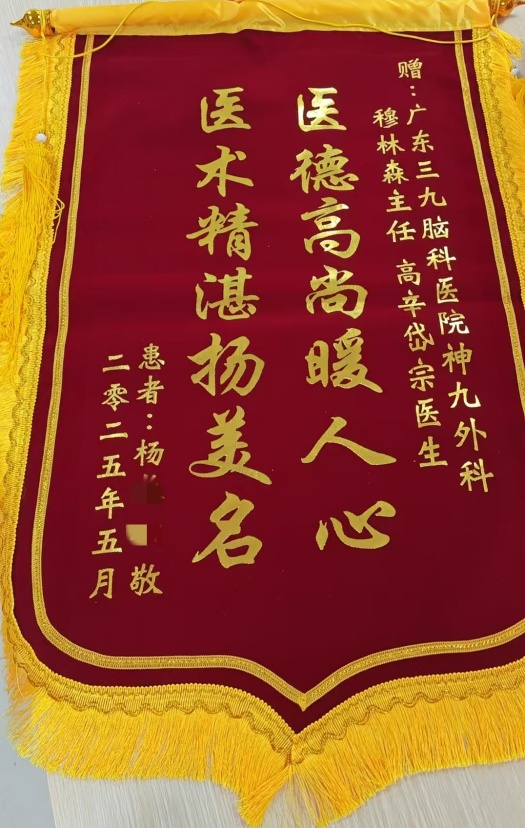 赠：广东三九脑科医院神九外科
穆林森主任 高辛岱宗医生
医德高尚暖人心
医术精湛扬美名
患者：杨 敬
二零二五年五月